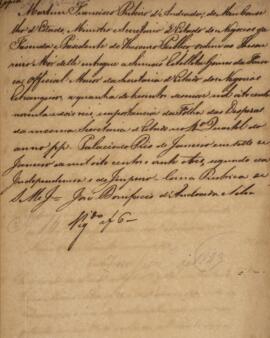 Martim Francisco Ribeiro d'Andrada, do Meu Conse
lho d'Estado, Ministro e Secretario d'Estado dos Negocios da
Fazenda e Presidente do Thesouro Publico ordena ao Thesou
reiro Mor delle entregue a Simeão Estellita Gomes da Fon
ceca Official Maior da Secretaria d'Estado dos Negocios
Estrangeiros, a quantia de
noventa e dois reis, importancia da Folha das Despezas
da mesma Secretaria d'Estado no 4º Quartel do
anno p.p. Palacio do Rio de Janeiro em sete de
Janeiro de mil oito centos e vinte e tres, segundo da
Independencia e do Imperio. Com a Rubrica de
S. M. I. = José Bonifacio d'Andrada e Silva